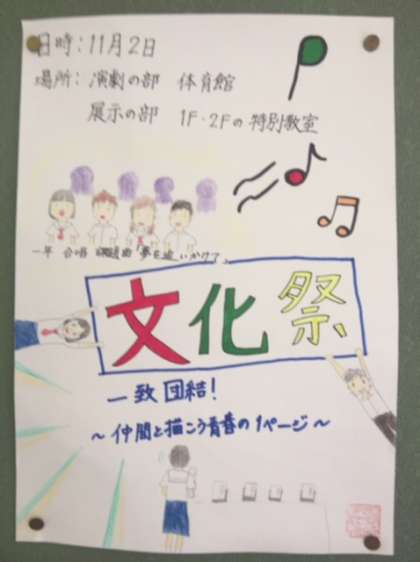 日時：11月2日
場所：演劇の部 体育館
展示の部 1F・2Fの特別教室
一年 合唱 課題曲「夢を追いかけて」
文化祭
一致団結！
～仲間と描こう青春の1ページ～